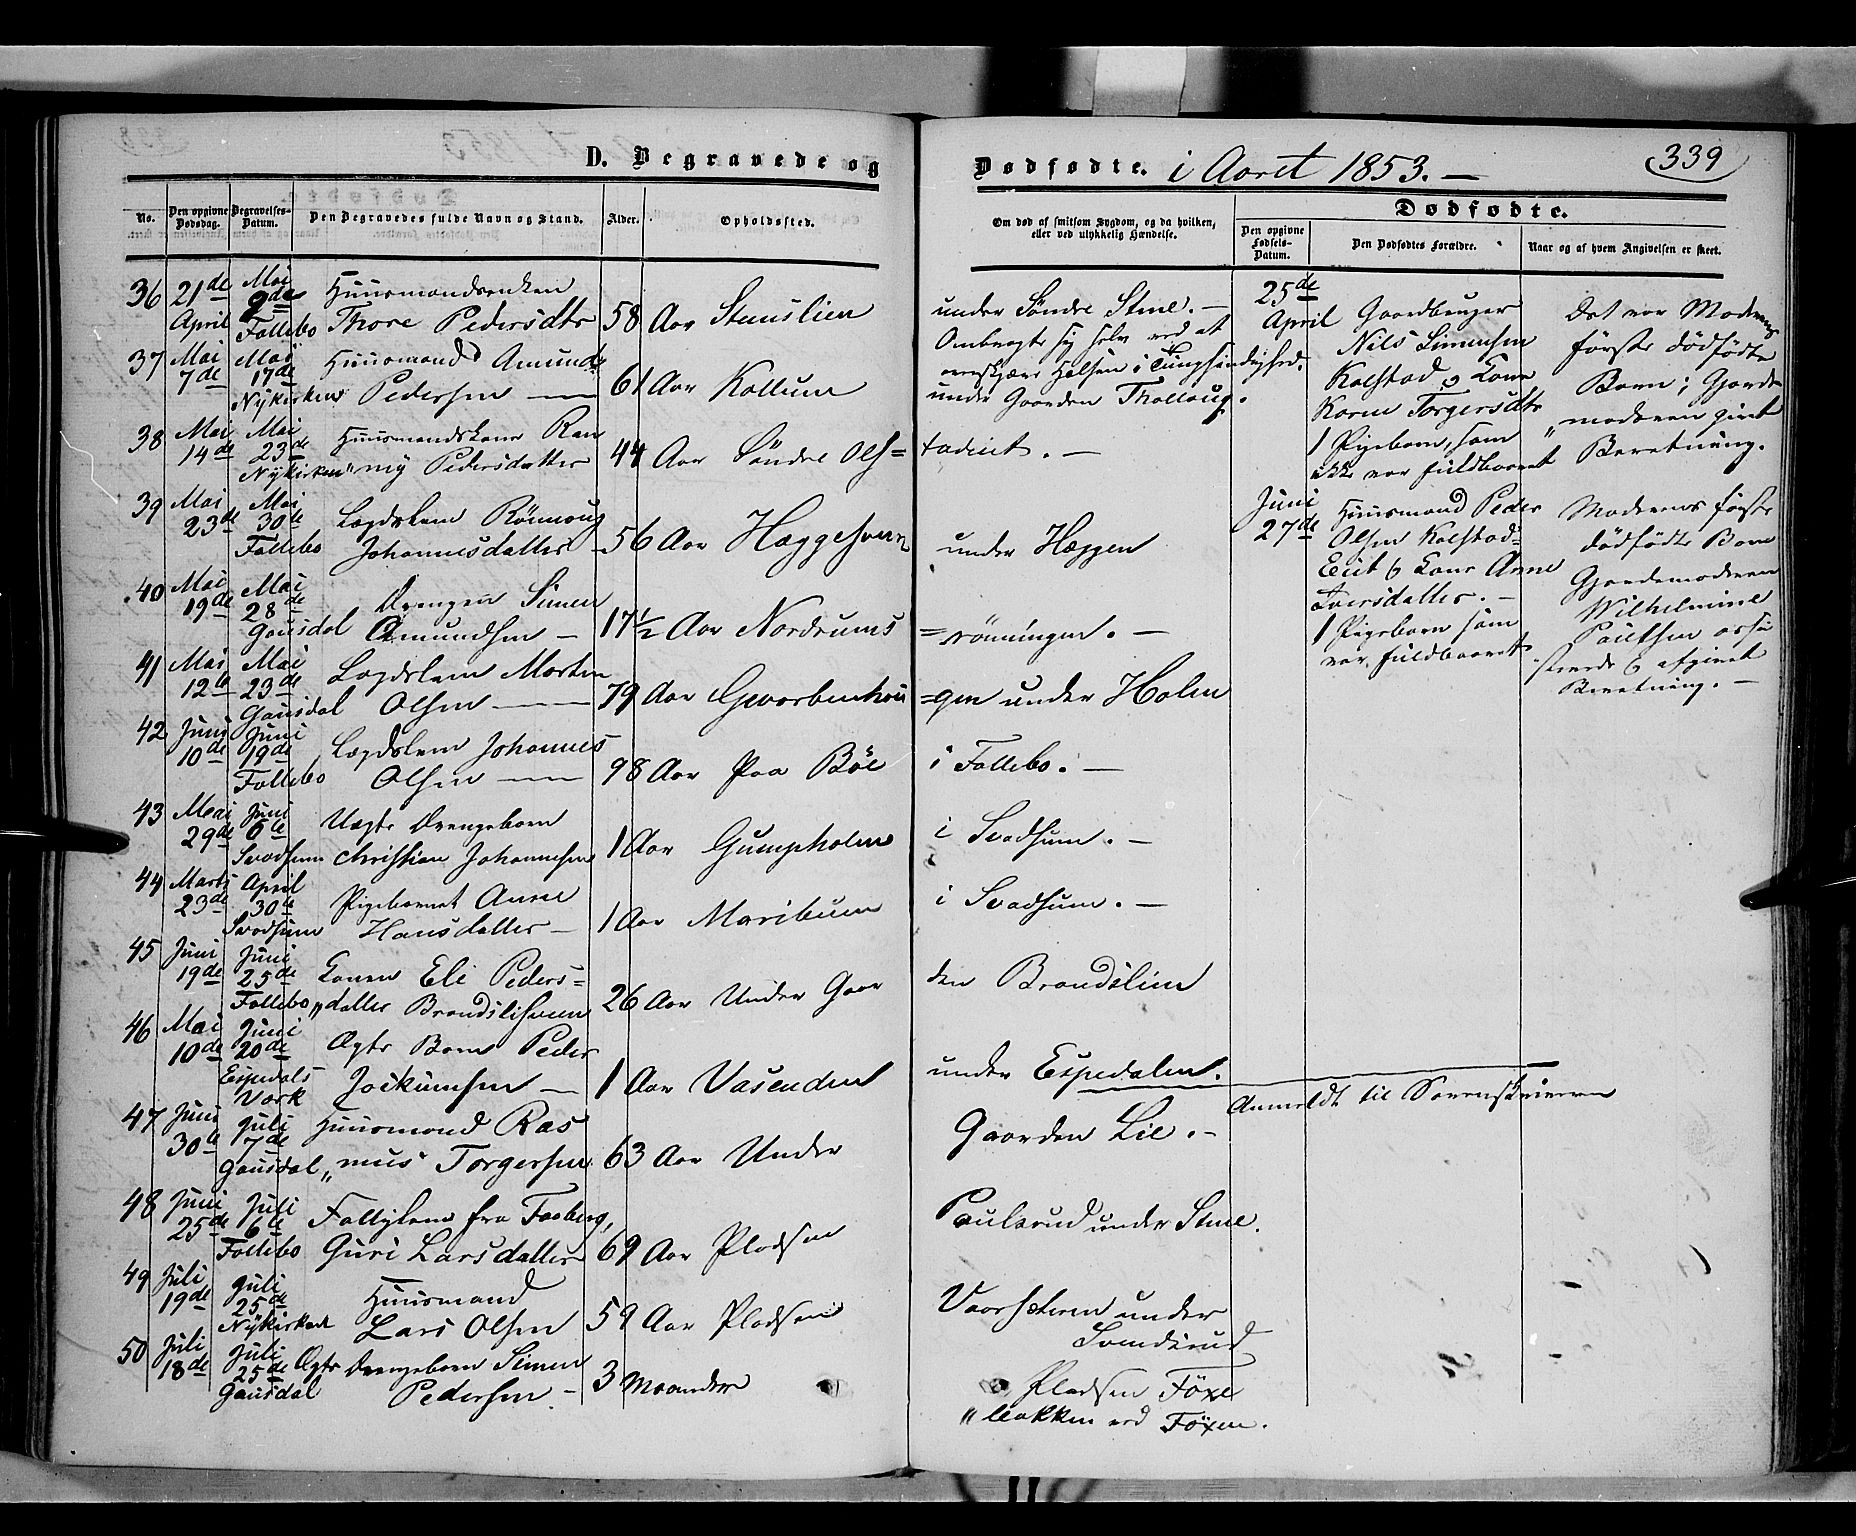 D. Begravede og
Dødfødte. i Aaret 1853. —
339
No.
Den opgivne Dødsdag.
Begravelses-Datum.
Den Begravedes fulde Navn og Stand.
Alder.
Opholdssted.
Om død af smitsom Sygdom, og da hvilken,
eller ved ulykkelig Hændelse.
Dødfødte.
Den opgivne Fødsels-Datum.
Den Dødfødtes Forældre.
Naar og af hvem Angivelsen er skeet.
36 21de April Mai 9de Follebo Huusmandsenken
Thore Pedersdtr 58 Aar Steenslien under Søndre Stene. —
37 Mai 7de Mai 17de Nykirken Huusmand Amund
Pedersen — 61 Aar Kollum
Ombragte sig selv ved at
overskjære Halsen i Tungsindighed.
under Gaarden Thollaug.
38 Mai 14de Mai 23de Nykirken Huusmandskone Ran
"ny Pedersdatter 44 Aar Søndre Ols=
tadeiet. —
39 Mai 23de Mai 30te Follebo Lægdslem Rønnaug
Johannesdatter — 56 Aar Hæggesveen under Hæggen
40 Mai 19de Mai 28de Gausdal Drengen Simen
Amundsen — 17½ Aar Nordrums
=rönningen. —
41 Mai 12te Mai 23de Gausdal Lægdslem Morten
Olsen — 79 Aar Qvarbenhau
=gen under Holen
42 Juni 10de Juni 19de Follebo Lægdslem Johannes
Olsen — 98 Aar Paa Böe i Follebo. —
43 Mai 29de Juni 6te Svadsum Uægte Drengebarn
Christian Johannesen 1 Aar Gumpholen i Svadsum. —
44 Marts 23de April 30te Svadsum Pigebarnet Anne
Hansdatter — 1 Aar Maribuen i Svadsum. —
45 Juni 19de Juni 25de Follebo Konen Eli Peders=
"datter Brandslisveen 26 Aar Under Gaar
den Brandslien
46 Mai 10de Juni 20de Espedals Værk Ægte Barn Peder
Jockumsen — 1 Aar Vasenden under Espedalen.
Anmeldt til Sorenskriveren
47 Juni 30te Juli 7de Gausdal Huusmand Ras
"mus Torgersen 63 Aar Under
Gaarden Lie. —
48 Juni 25de Juli 6te Follebo Fattiglem fra Faaberg,
Guri Larsdatter 69 Aar Pladsen
Paulsrud under Stene.
49 Juli 19de Juli 25de Nykirken Huusmand
Lars Olsen 59 Aar Pladsen
Vaarsæteren under
Svendsrud
50 Juli 18de Juli 25de Gausdal Ægte Drengebarn Simen
Pedersen — 3 Maaneder
Pladsen Föxe
"bakken ved Föxen.
25de April Gaardbruger
Nils Simensen
Kolstad og Kone
Karen Torgersdtr
1 Pigebarn, som
ikke var fuldbaaret
Det var Moderens
første dödfödte
Barn; Gjorde
"moderen givet
Beretning.
Juni 27de Huusmand Peder
Olsen Kolstad=
Eiet og Kone Anne
Iversdatter. —
1 Pigebarn som
var fuldbaaret
Moderens første
dödfödte Barn
Gjordemoderen
Wilhelmine
Poulsen assi
"sterede og afgivet
Beretning. —